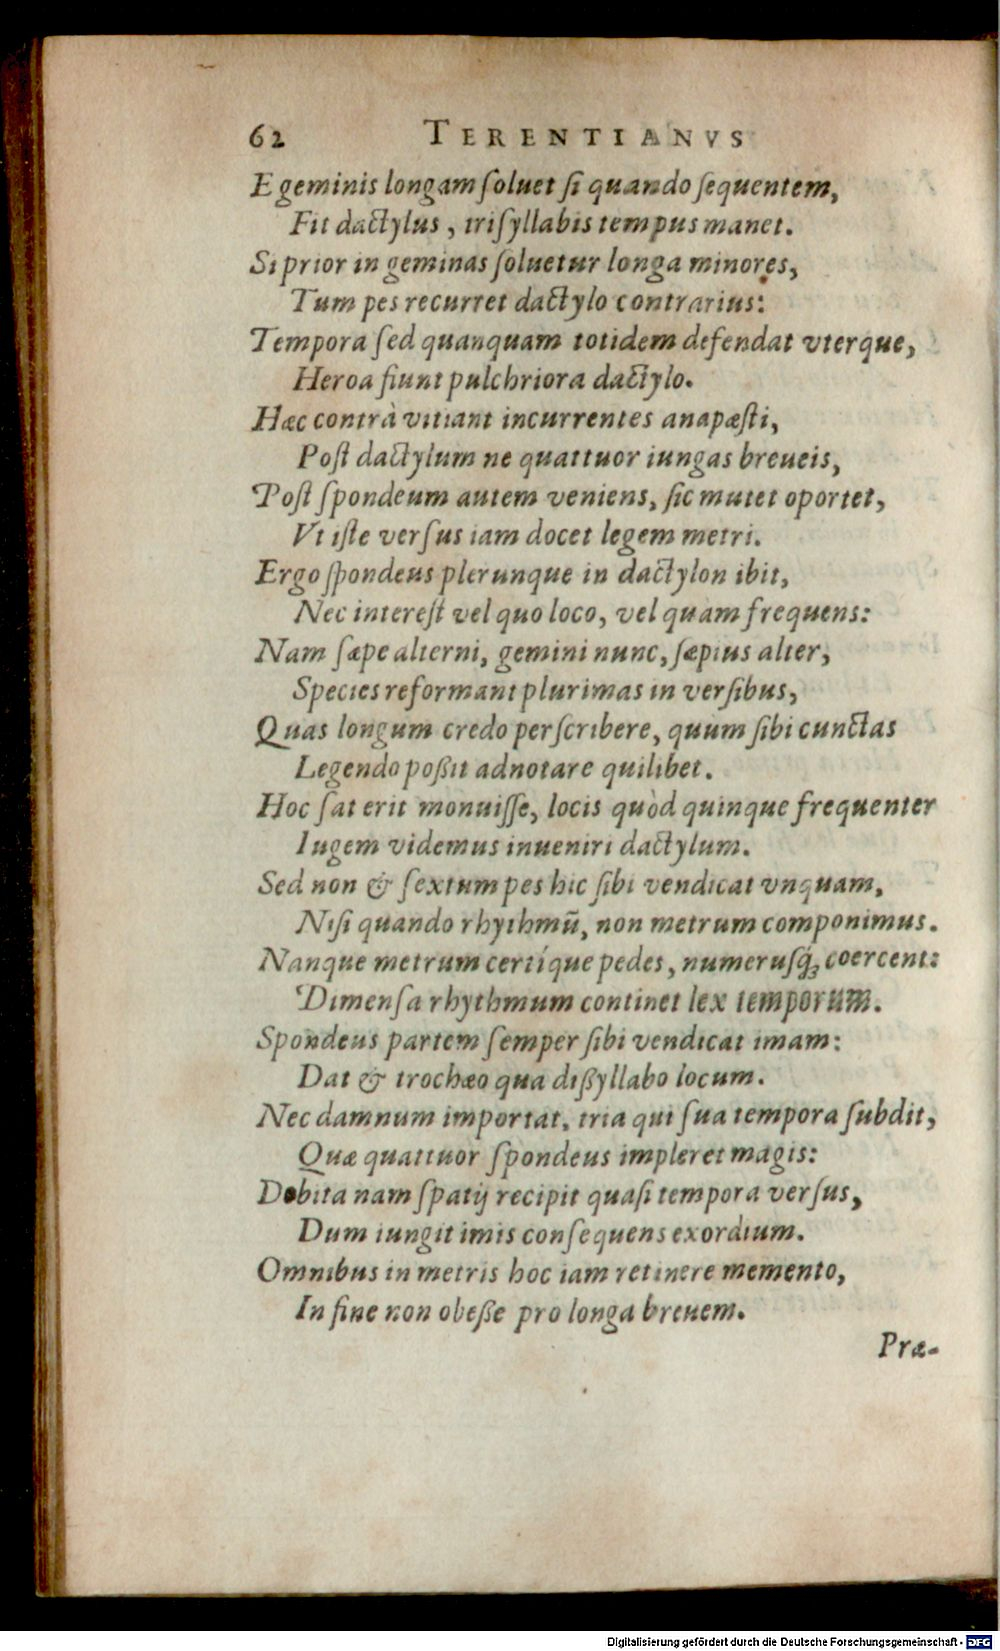 62 TERENTIANVS
E geminis longam ſoluet ſi quando ſequentem,
Fit dactylus, triſyllabis tempus manet.
Si prior in geminas ſoluetur longa minores,
Tum pes recurret dactylo contrarius:
Tempora ſed quanquam totidem defendat vterque,
Heroa fiunt pulchriora dactylo.
Hæc contrà vitiant incurrentes anapæſti,
Poſt dactylum ne quattuor iungas breueis,
Poſt ſpondeum autem veniens, ſic mutet oportet,
Vt iſte verſus iam docet legem metri.
Ergo ſpondeus plerunque in dactylon ibit,
Nec intereſt vel quo loco, vel quam frequens:
Nam ſæpe alterni, gemini nunc, ſæpius alter,
Species reformant plurimas in verſibus,
Quas longum credo perſcribere, quum ſibi cunctas
Legendo poßit adnotare quilibet.
Hoc ſat erit monuiſſe, locis quòd quinque frequenter
Iugem videmus inueniri dactylum.
Sed non & ſextum pes hic ſibi vendicat vnquam,
Niſi quando rhythmū, non metrum componimus.
Nanque metrum certíque pedes, numeruſq́ꝫ coercent:
Dimenſa rhythmum continet lex temporum.
Spondeus partem ſemper ſibi vendicat imam:
Dat & trochæo qua dißyllabo locum.
Nec damnum importat, tria qui ſua tempora ſubdit,
Quæ quattuor ſpondeus impleret magis:
Debita nam ſpatij recipit quaſi tempora verſus,
Dum iungit imis conſequens exordium.
Omnibus in metris hoc iam retinere memento,
In fine non obeße pro longa breuem.
Præ-
Digitalisierung gefördert durch die Deutsche Forschungsgemeinschaft - DFG